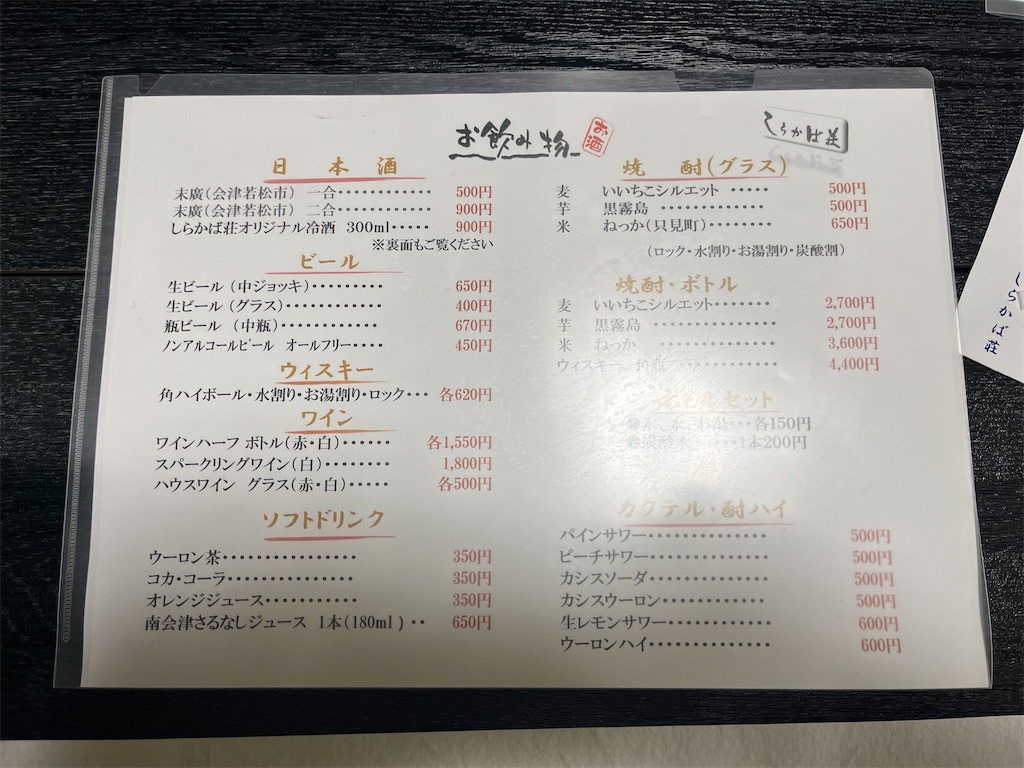 お飲み物
お酒
しらかば荘
日本酒
末廣(会津若松市) 一合・・・・・・・・・・・・ 500円
末廣(会津若松市) 二合・・・・・・・・・・・・ 900円
しらかば荘オリジナル冷酒 300ml・・・・・ 900円
※裏面もご覧ください
ビール
生ビール (中ジョッキ)・・・・・・・・・・ 650円
生ビール (グラス)・・・・・・・・・・・・ 400円
瓶ビール (中瓶)・・・・・・・・・・・・・ 670円
ノンアルコールビール オールフリー・・・・ 450円
ウィスキー
角ハイボール・水割り・お湯割り・ロック・・・ 各620円
ワイン
ワインハーフ ボトル(赤・白)・・・・・・・ 各1,550円
スパークリングワイン(白)・・・・・・・・ 1,800円
ハウスワイン グラス(赤・白)・・・・・ 各500円
ソフトドリンク
ウーロン茶・・・・・・・・・・・・・・・・ 350円
コカ・コーラ・・・・・・・・・・・・・・・ 350円
オレンジジュース・・・・・・・・・・・ 350円
南会津さるなしジュース 1本(180ml)・・ 650円
焼酎(グラス)
麦 いいちこシルエット ・・・・・ 500円
芋 黒霧島 ・・・・・・・・・・・・ 500円
米 ねっか(只見町)・・・・・・・ 650円
(ロック・水割り・お湯割り・炭酸割)
焼酎・ボトル
麦 いいちこシルエット・・・・・・・ 2,700円
芋 黒霧島 ・・・・・・・・・・・・・ 2,700円
米 ねっか ・・・・・・・・・・・・・ 3,600円
ウィスキー 角瓶・・・・・・・・・・・ 4,400円
セット
氷、水、お湯・・・各150円
炭酸水・・・・・1本200円
カクテル・酎ハイ
パインサワー・・・・・・・・・・・・・・ 500円
ピーチサワー・・・・・・・・・・・・・・ 500円
カシスソーダ・・・・・・・・・・・・・・ 500円
カシスウーロン・・・・・・・・・・・・・ 500円
生レモンサワー・・・・・・・・・・・・ 600円
ウーロンハイ・・・・・・・・・・・・・・ 600円
しらかば荘